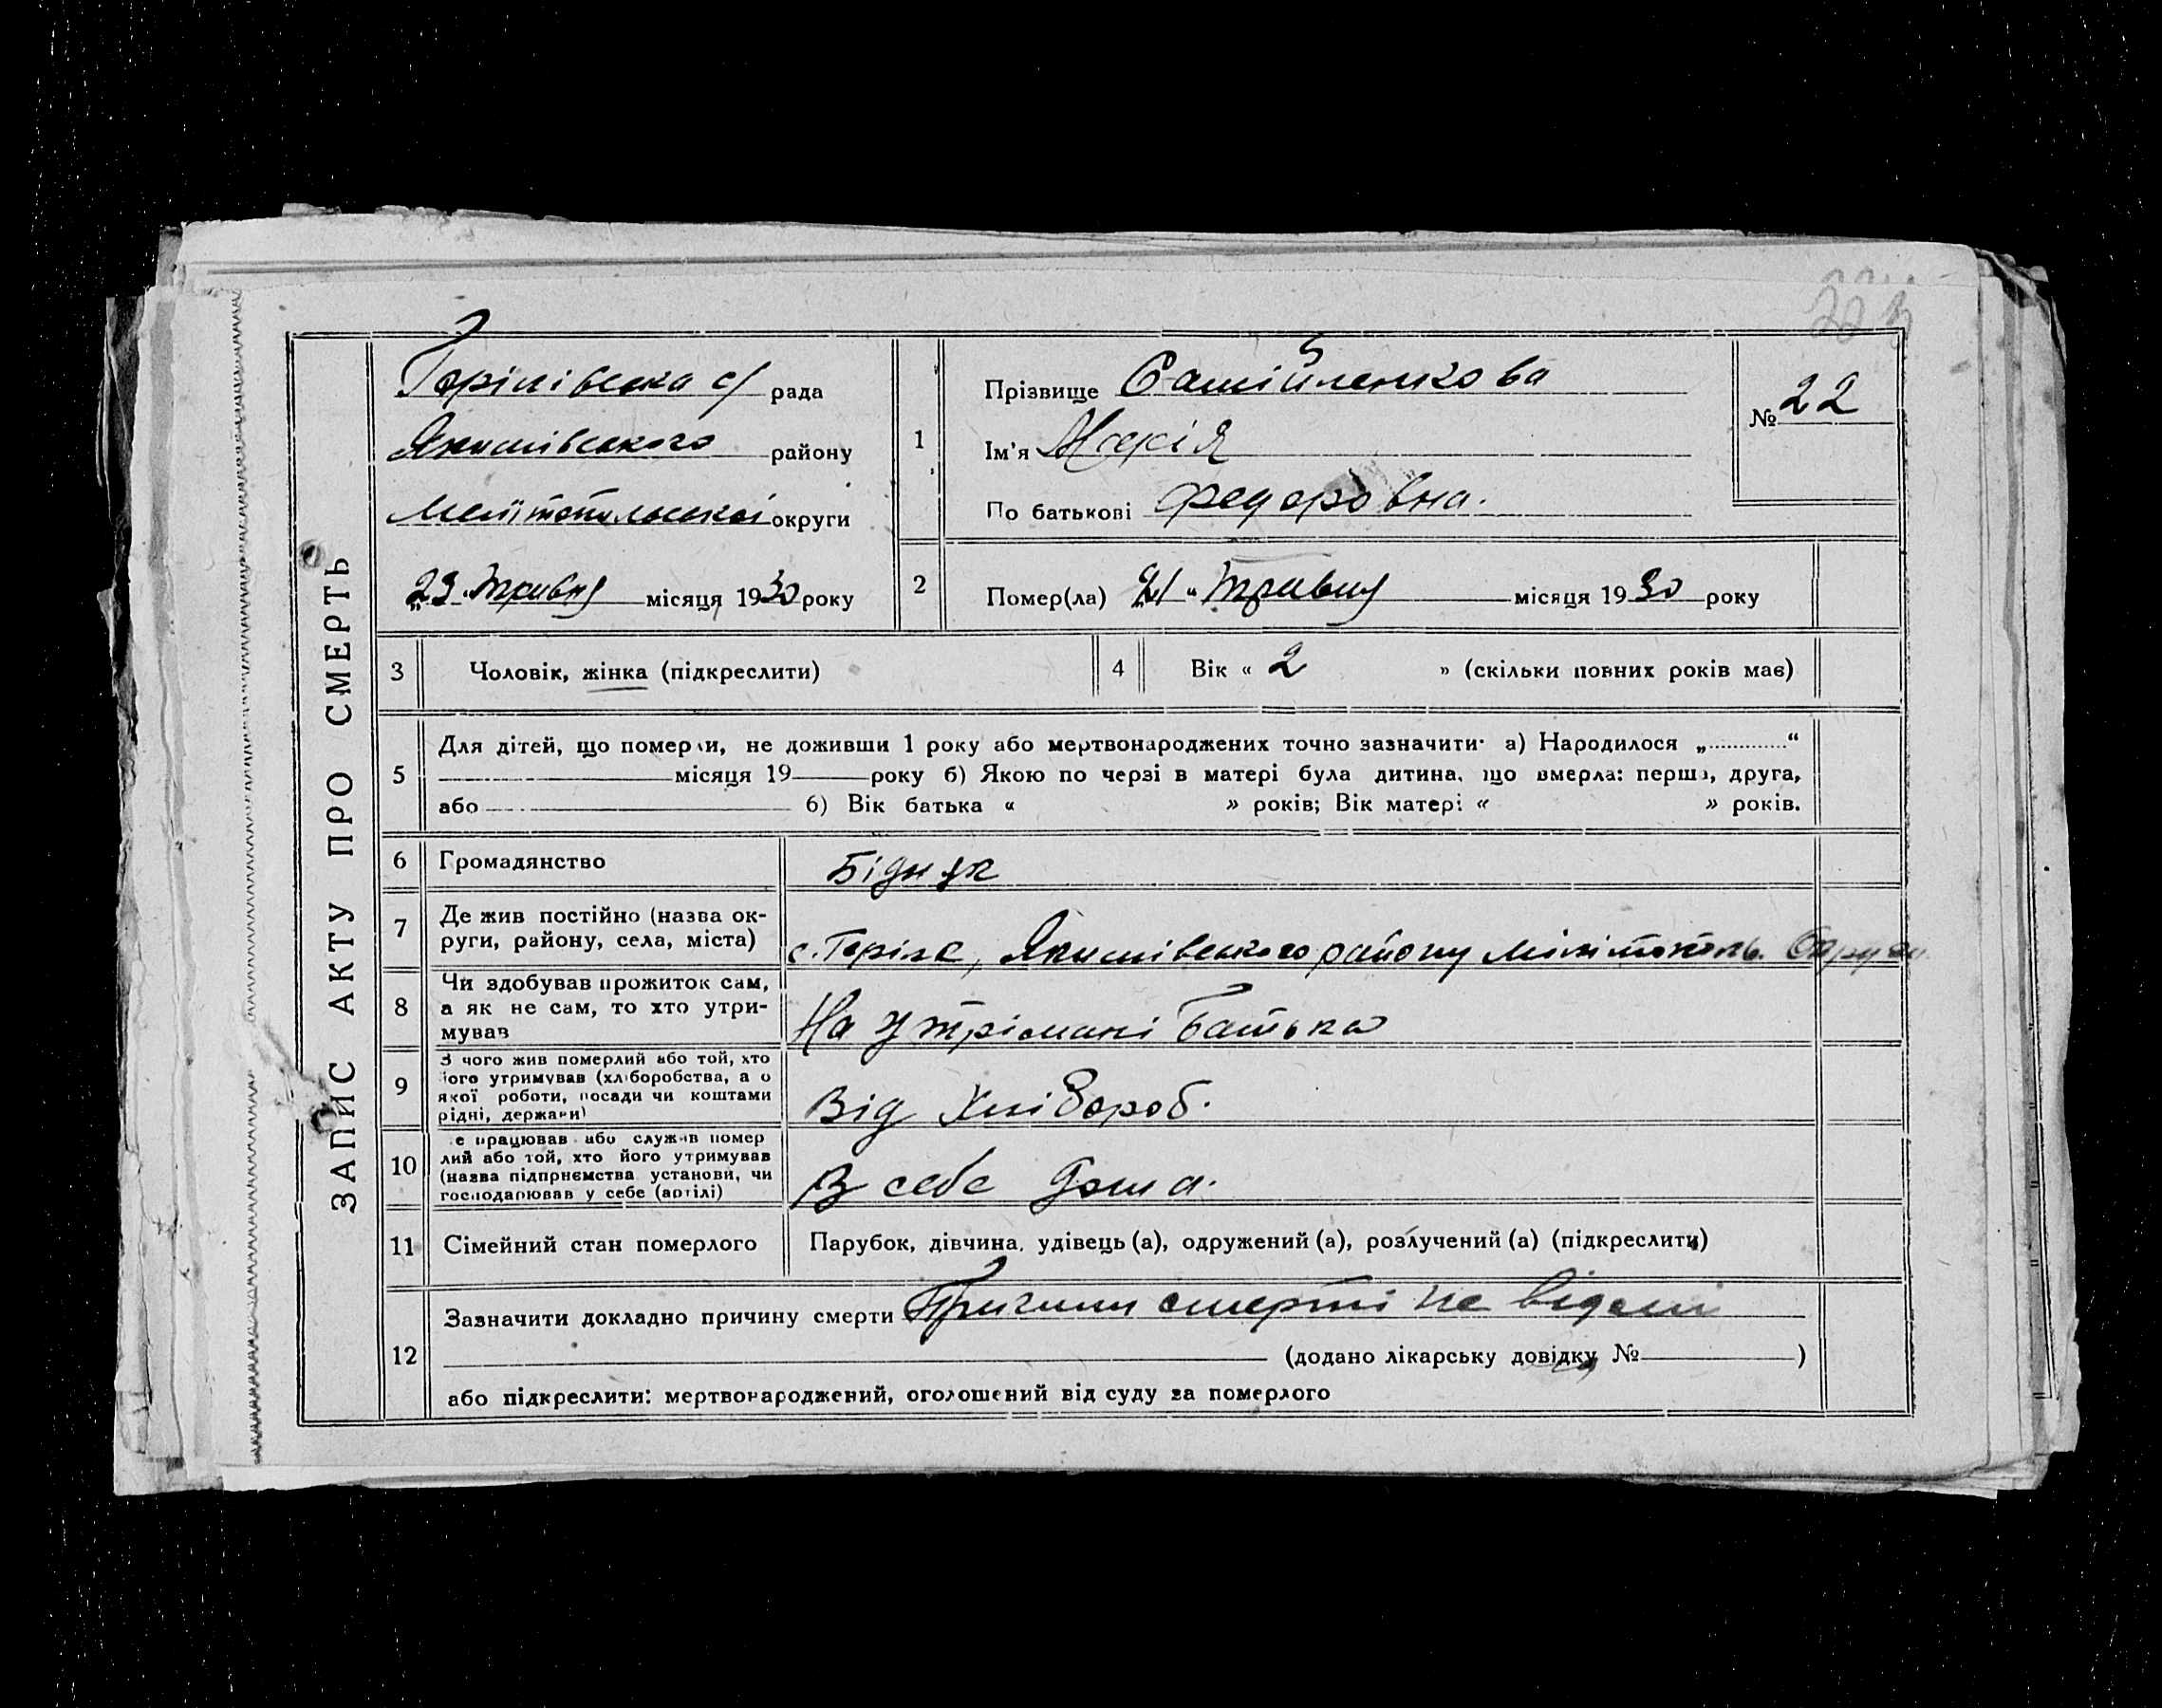 ЗАПИС АКТУ ПРО СМЕРТЬ
Горілівська с/ рада
Якимівського району
Мелітопольської округи
„23“ травня місяця 1930 року
1
Прізвище Самійленкова
Ім'я Марія
По батькові Федоровна.
№ 22
2
Помер(ла) „21“ травня місяця 1930 року
3 Чоловік, жінка (підкреслити)
4 Вік « 2 » (скільки повних років має)
5
Для дітей, що померли, не доживши 1 року або мертвонароджених точно зазначити: а) Народилося „............“
місяця 19 року б) Якою по черзі в матері була дитина, що вмерла: перша, друга,
або 6) Вік батька « » років; Вік матері « » років.
6 Громадянство Бідняк
7 Де жив постійно (назва ок-
руги, району, села, міста)
с. Горіле, Якимівського району Мілітополь. Округи
8 Чи здобував прожиток сам,
а як не сам, то хто утри-
мував
На утрімані батька
9 З чого жив померлий або той, хто
його утримував (хліборобства, а о
якої роботи, посади чи коштами
рідні, держави)
Від Хлібороб.
10 е працював або служив помер
лий або той, хто його утримував
(назва підприємства установи, чи
господарював у себе (артілі)
В себе дома.
11 Сімейний стан померлого Парубок, дівчина, удівець (а), одружений (а), розлучений (а) (підкреслити)
12 Зазначити докладно причину смерти Причини смерті не відомі
(додано лікарську довідку № )
або підкреслити: мертвонароджений, оголошений від суду за померлого